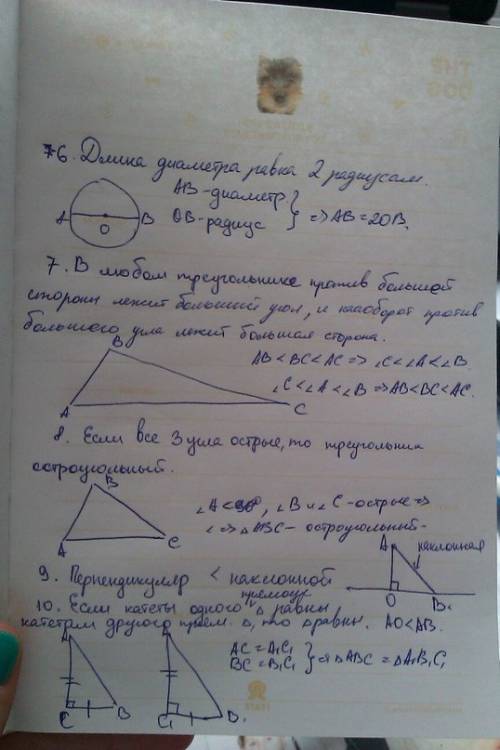 6. Длина диаметра равна 2 радиусам.
AB - диаметр
OB - радиус } => AB = 2OB.
A B
O
7. В любом треугольнике против большей
стороны лежит больший угол, и наоборот против
большего угла лежит большая сторона.
B
AB < BC < AC => ∠C < ∠A < ∠B.
∠C < ∠A < ∠B => AB < BC < AC.
A C
8. Если все 3 угла острые, то треугольник
остроугольный.
B
∠A < 90°, ∠B и ∠C - острые =>
∠ => △ABC - остроугольный.
A C
A наклонная
9. Перпендикуляр < наклонной
O B
прямоуг
10. Если катеты одного △ равны
катетам другого прям. △, то △ равны. AO < AB.
A A
AC = A₁C₁
BC = B₁C₁ } => △ABC = △A₁B₁C₁
C B C₁ B₁